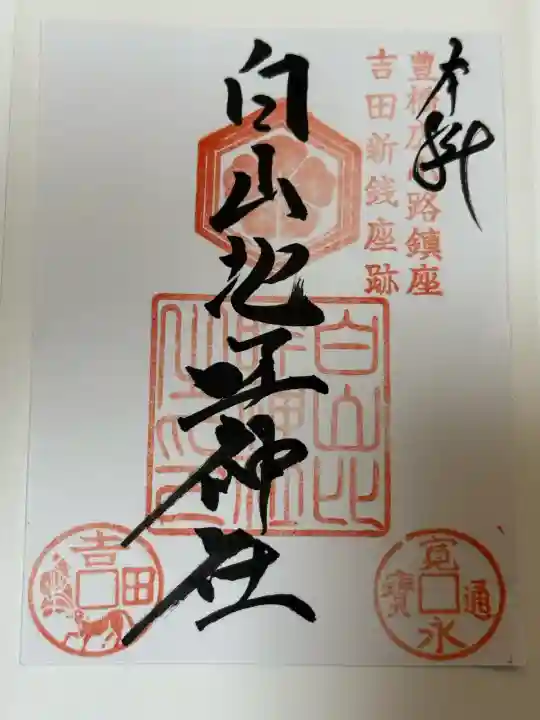 奉拝
豊橋広小路鎮座
吉田新銭座跡
白山地主神社
白山比
咩神社
寛永通寳
吉田